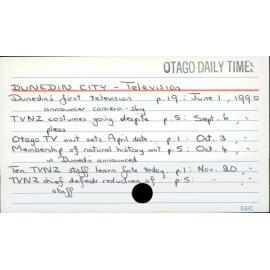 OTAGO DAILY TIMES
DUNEDIN CITY - Television
Dunedin's first television p.19: June 1, 1990
announcer camera-shy
TVNZ costumes going despite p.5: Sept. 6, "
pleas
Otago TV unit sets April date. p.1: Oct. 3, "
Membership of natural history unit p.5: Oct. 4, "
in Dunedin announced
Ten TVNZ staff learn fate today. p.1: Nov. 20, "
TVNZ chief defends reduction of p.5: " "
staff